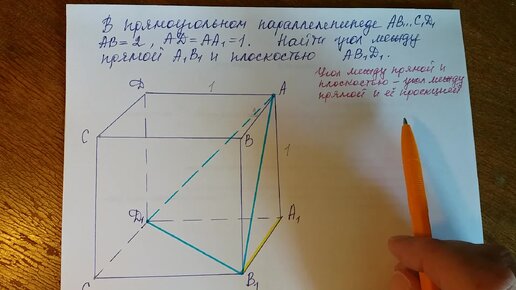 В прямоугольном параллелепипеде AB...C₁D₁
AB=2, AD=AA₁=1. Найти угол между
прямой A₁B₁ и плоскостью AB₁D₁.
Угол между прямой и
плоскостью - угол между
прямой и её проекцией
D
1
A
C
B
1
D₁
A₁
B₁
C